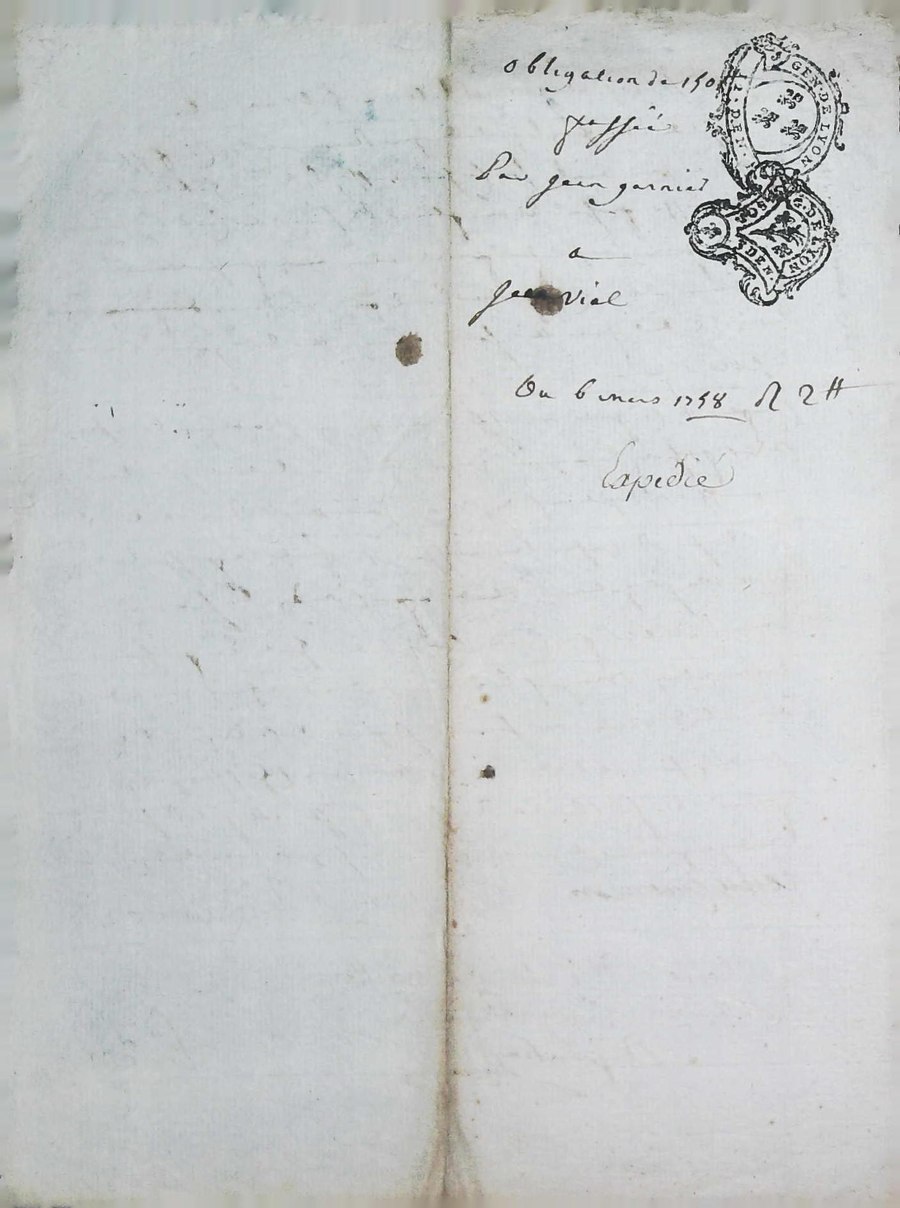 obligation de 150
passée
Par jean garnier
a
jean vial
Du 6 mars 1758 R 2 ₶
Expedié
GEN. DE LYON
2. DEN.
G. DE LYON
DEN.